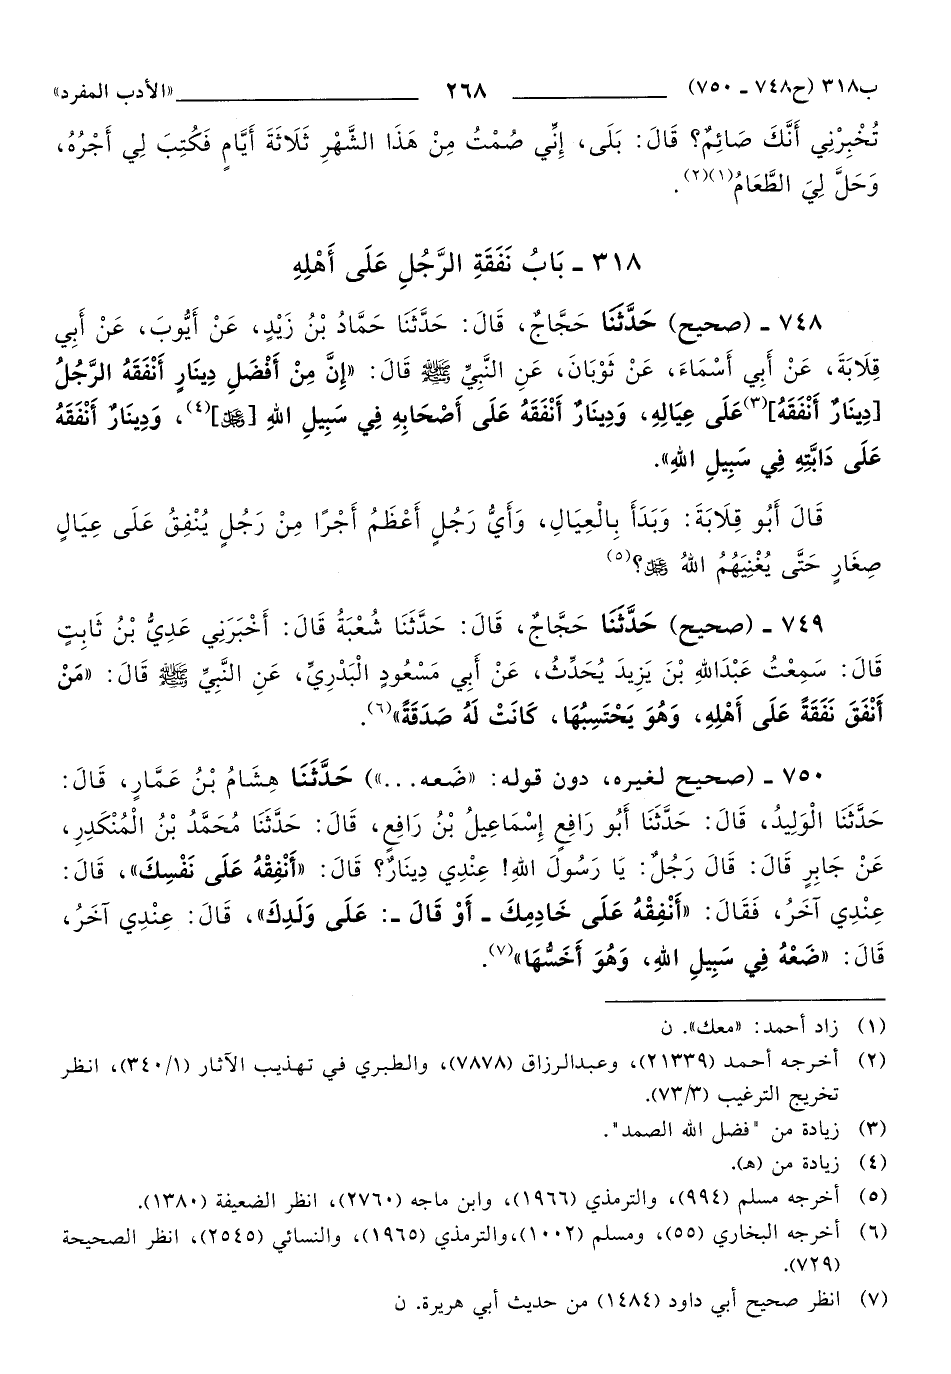 ب٣١٨ (ح٧٤٨ ـ ٧٥٠) ٢٦٨ «الأدب المفرد»
تُخْبِرْنِي أَنَّكَ صَائِمٌ؟ قَالَ: بَلَى، إِنِّي صُمْتُ مِنْ هَذَا الشَّهْرِ ثَلَاثَةَ أَيَّامٍ فَكُتِبَ لِي أَجْرُهُ،
وَحَلَّ لِيَ الطَّعَامُ(١)(٢).
٣١٨ ـ بَابُ نَفَقَةِ الرَّجُلِ عَلَى أَهْلِهِ
٧٤٨ ـ (صحيح) حَدَّثَنَا حَجَّاجٌ، قَالَ: حَدَّثَنَا حَمَّادُ بْنُ زَيْدٍ، عَنْ أَيُّوبَ، عَنْ أَبِي
قِلَابَةَ، عَنْ أَبِي أَسْمَاءَ، عَنْ ثَوْبَانَ، عَنِ النَّبِيِّ ﷺ قَالَ: «إِنَّ مِنْ أَفْضَلِ دِينَارٍ أَنْفَقَهُ الرَّجُلُ
[دِينَارٌ أَنْفَقَهُ](٣)عَلَى عِيَالِهِ، وَدِينَارٌ أَنْفَقَهُ عَلَى أَصْحَابِهِ فِي سَبِيلِ اللهِ [عز وجل](٤)، وَدِينَارٌ أَنْفَقَهُ
عَلَى دَابَّتِهِ فِي سَبِيلِ اللهِ».
قَالَ أَبُو قِلَابَةَ: وَبَدَأَ بِالْعِيَالِ، وَأَيُّ رَجُلٍ أَعْظَمُ أَجْرًا مِنْ رَجُلٍ يُنْفِقُ عَلَى عِيَالٍ
صِغَارٍ حَتَّى يُغْنِيَهُمُ اللهُ عز وجل؟(٥)
٧٤٩ ـ (صحيح) حَدَّثَنَا حَجَّاجٌ، قَالَ: حَدَّثَنَا شُعْبَةُ قَالَ: أَخْبَرَنِي عَدِيُّ بْنُ ثَابِتٍ
قَالَ: سَمِعْتُ عَبْدَاللهِ بْنَ يَزِيدَ يُحَدِّثُ، عَنْ أَبِي مَسْعُودٍ الْبَدْرِيِّ، عَنِ النَّبِيِّ ﷺ قَالَ: «مَنْ
أَنْفَقَ نَفَقَةً عَلَى أَهْلِهِ، وَهُوَ يَحْتَسِبُهَا، كَانَتْ لَهُ صَدَقَةً»(٦).
٧٥٠ ـ (صحيح لغيره، دون قوله: «ضَعه...») حَدَّثَنَا هِشَامُ بْنُ عَمَّارٍ، قَالَ:
حَدَّثَنَا الْوَلِيدُ، قَالَ: حَدَّثَنَا أَبُو رَافِعٍ إِسْمَاعِيلُ بْنُ رَافِعٍ، قَالَ: حَدَّثَنَا مُحَمَّدُ بْنُ الْمُنْكَدِرِ،
عَنْ جَابِرٍ قَالَ: قَالَ رَجُلٌ: يَا رَسُولَ اللهِ! عِنْدِي دِينَارٌ؟ قَالَ: «أَنْفِقْهُ عَلَى نَفْسِكَ»، قَالَ:
عِنْدِي آخَرُ، فَقَالَ: «أَنْفِقْهُ عَلَى خَادِمِكَ ـ أَوْ قَالَ ـ: عَلَى وَلَدِكَ»، قَالَ: عِنْدِي آخَرُ،
قَالَ: «ضَعْهُ فِي سَبِيلِ اللهِ، وَهُوَ أَخَسُّهَا»(٧).
(١) زاد أحمد: «معك». ن
(٢) أخرجه أحمد (٢١٣٣٩)، وعبدالرزاق (٧٨٧٨)، والطبري في تهذيب الآثار (٣٤٠/١)، انظر
تخريج الترغيب (٧٣/٣).
(٣) زيادة من "فضل الله الصمد".
(٤) زيادة من (هـ).
(٥) أخرجه مسلم (٩٩٤)، والترمذي (١٩٦٦)، وابن ماجه (٢٧٦٠)، انظر الضعيفة (١٣٨٠).
(٦) أخرجه البخاري (٥٥)، ومسلم (١٠٠٢)،والترمذي (١٩٦٥)، والنسائي (٢٥٤٥)، انظر الصحيحة
(٧٢٩).
(٧) انظر صحيح أبي داود (١٤٨٤) من حديث أبي هريرة. ن